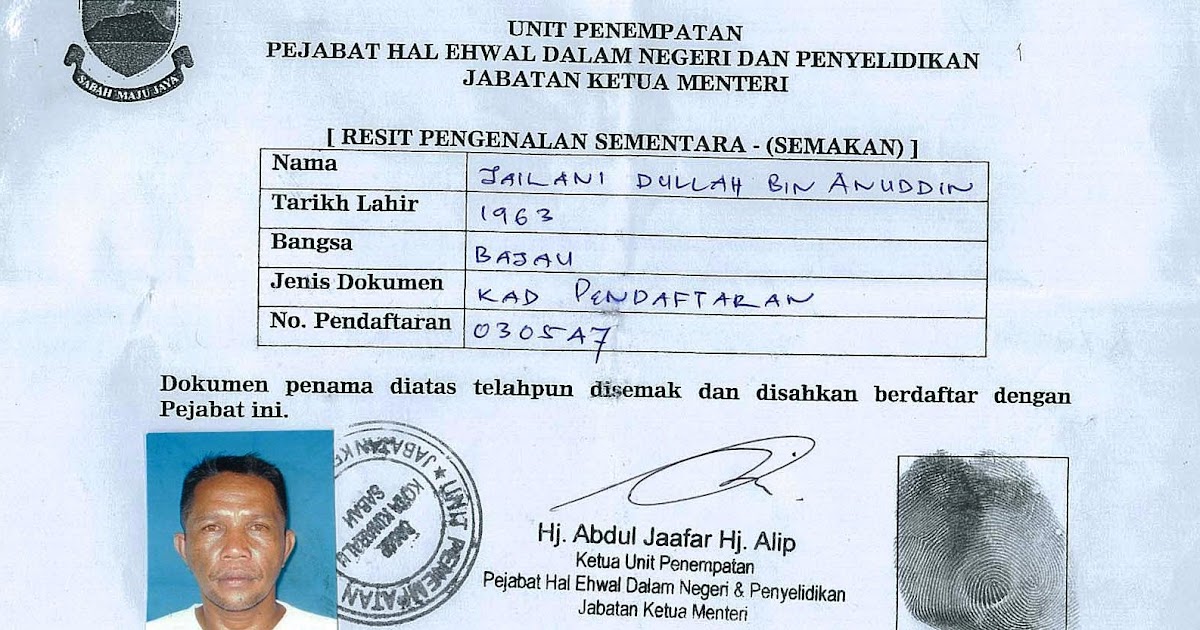 SABAH MAJU JAYA
UNIT PENEMPATAN
PEJABAT HAL EHWAL DALAM NEGERI DAN PENYELIDIKAN
JABATAN KETUA MENTERI
[ RESIT PENGENALAN SEMENTARA - (SEMAKAN) ]
Nama JAILANI DULLAH BIN ANUDDIN
Tarikh Lahir 1963
Bangsa BAJAU
Jenis Dokumen KAD PENDAFTARAN
No. Pendaftaran 0305A7
Dokumen penama diatas telahpun disemak dan disahkan berdaftar dengan
Pejabat ini.
UNIT PENEMPATAN ★ JABATAN
KOTA KINABALU
SABAH
Hj. Abdul Jaafar Hj. Alip
Ketua Unit Penempatan
Pejabat Hal Ehwal Dalam Negeri & Penyelidikan
Jabatan Ketua Menteri